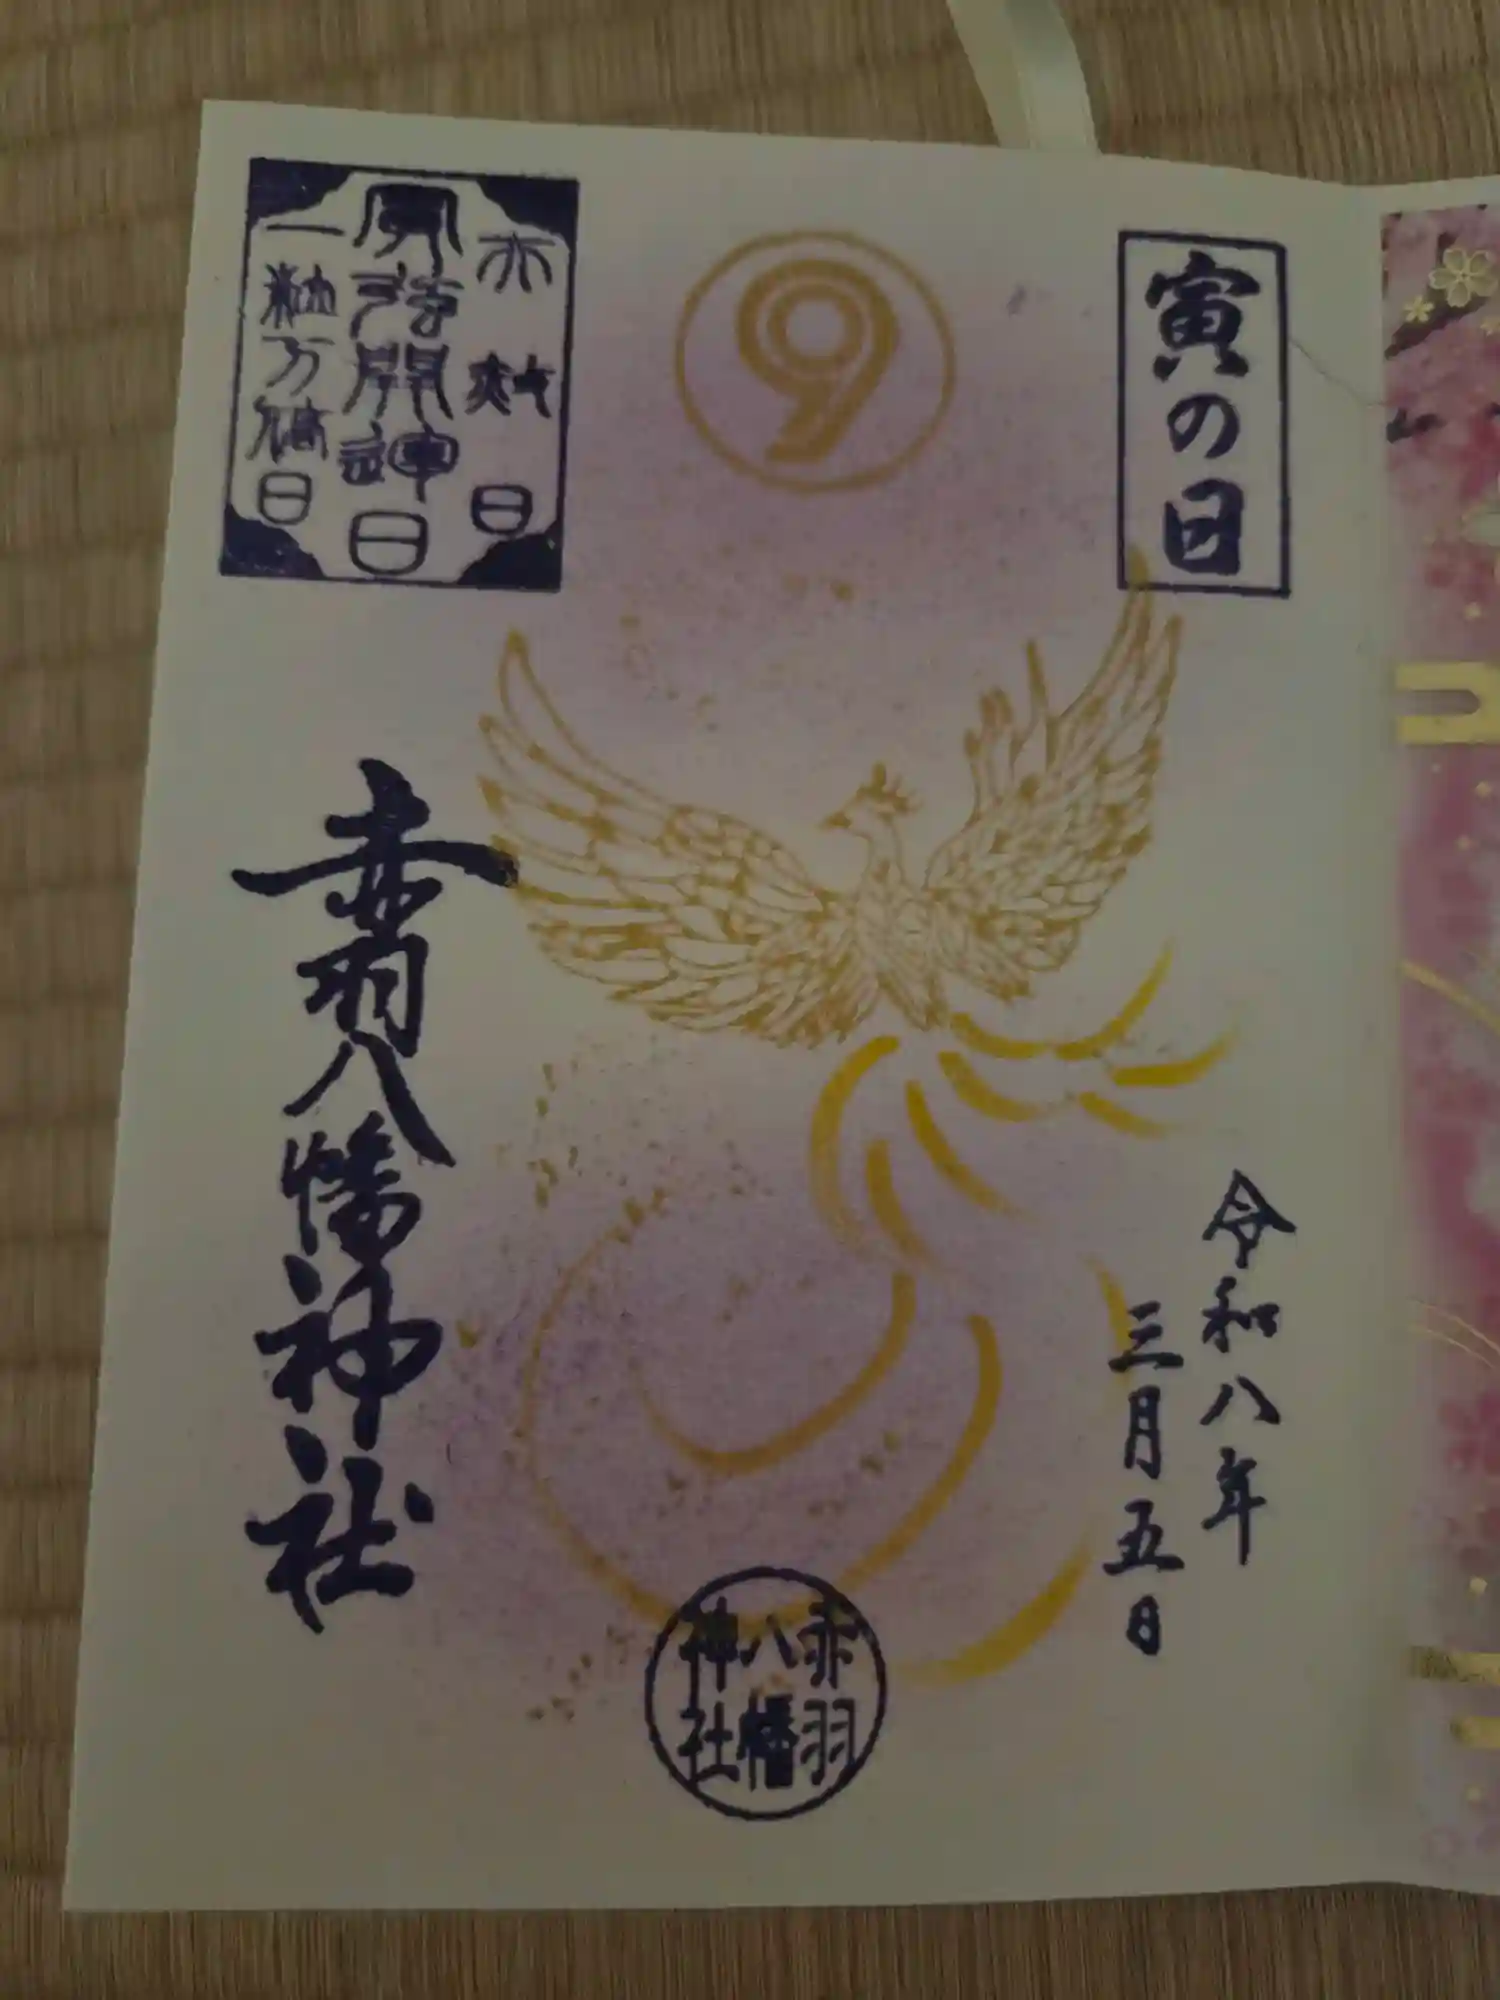 寅の日
9
天赦日
天恩開神日
一粒万倍日
令和八年
三月五日
赤羽八幡神社
赤羽
八幡
神社